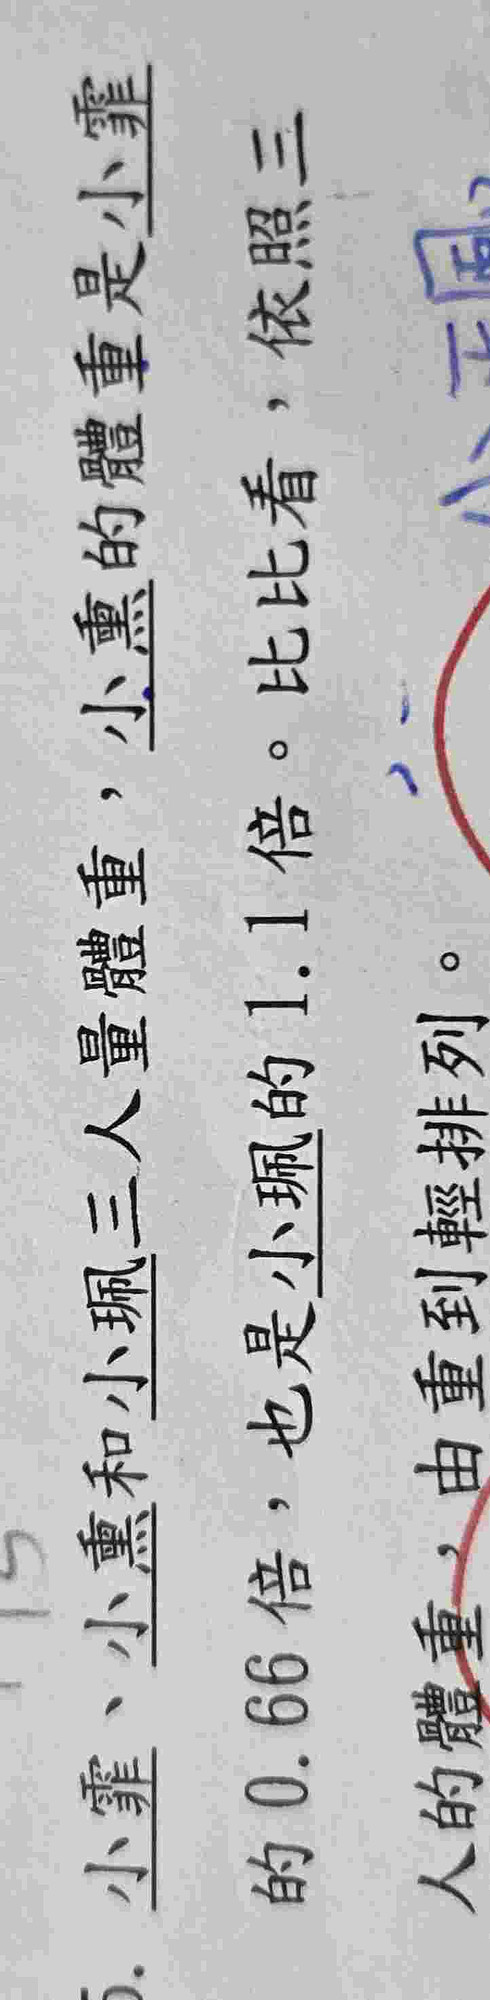 小霏、小熏和小珮三人量體重，小熏的體重是小霏
的 0.66 倍，也是小珮的 1.1 倍。比比看，依照三
人的體重，由重到輕排列。